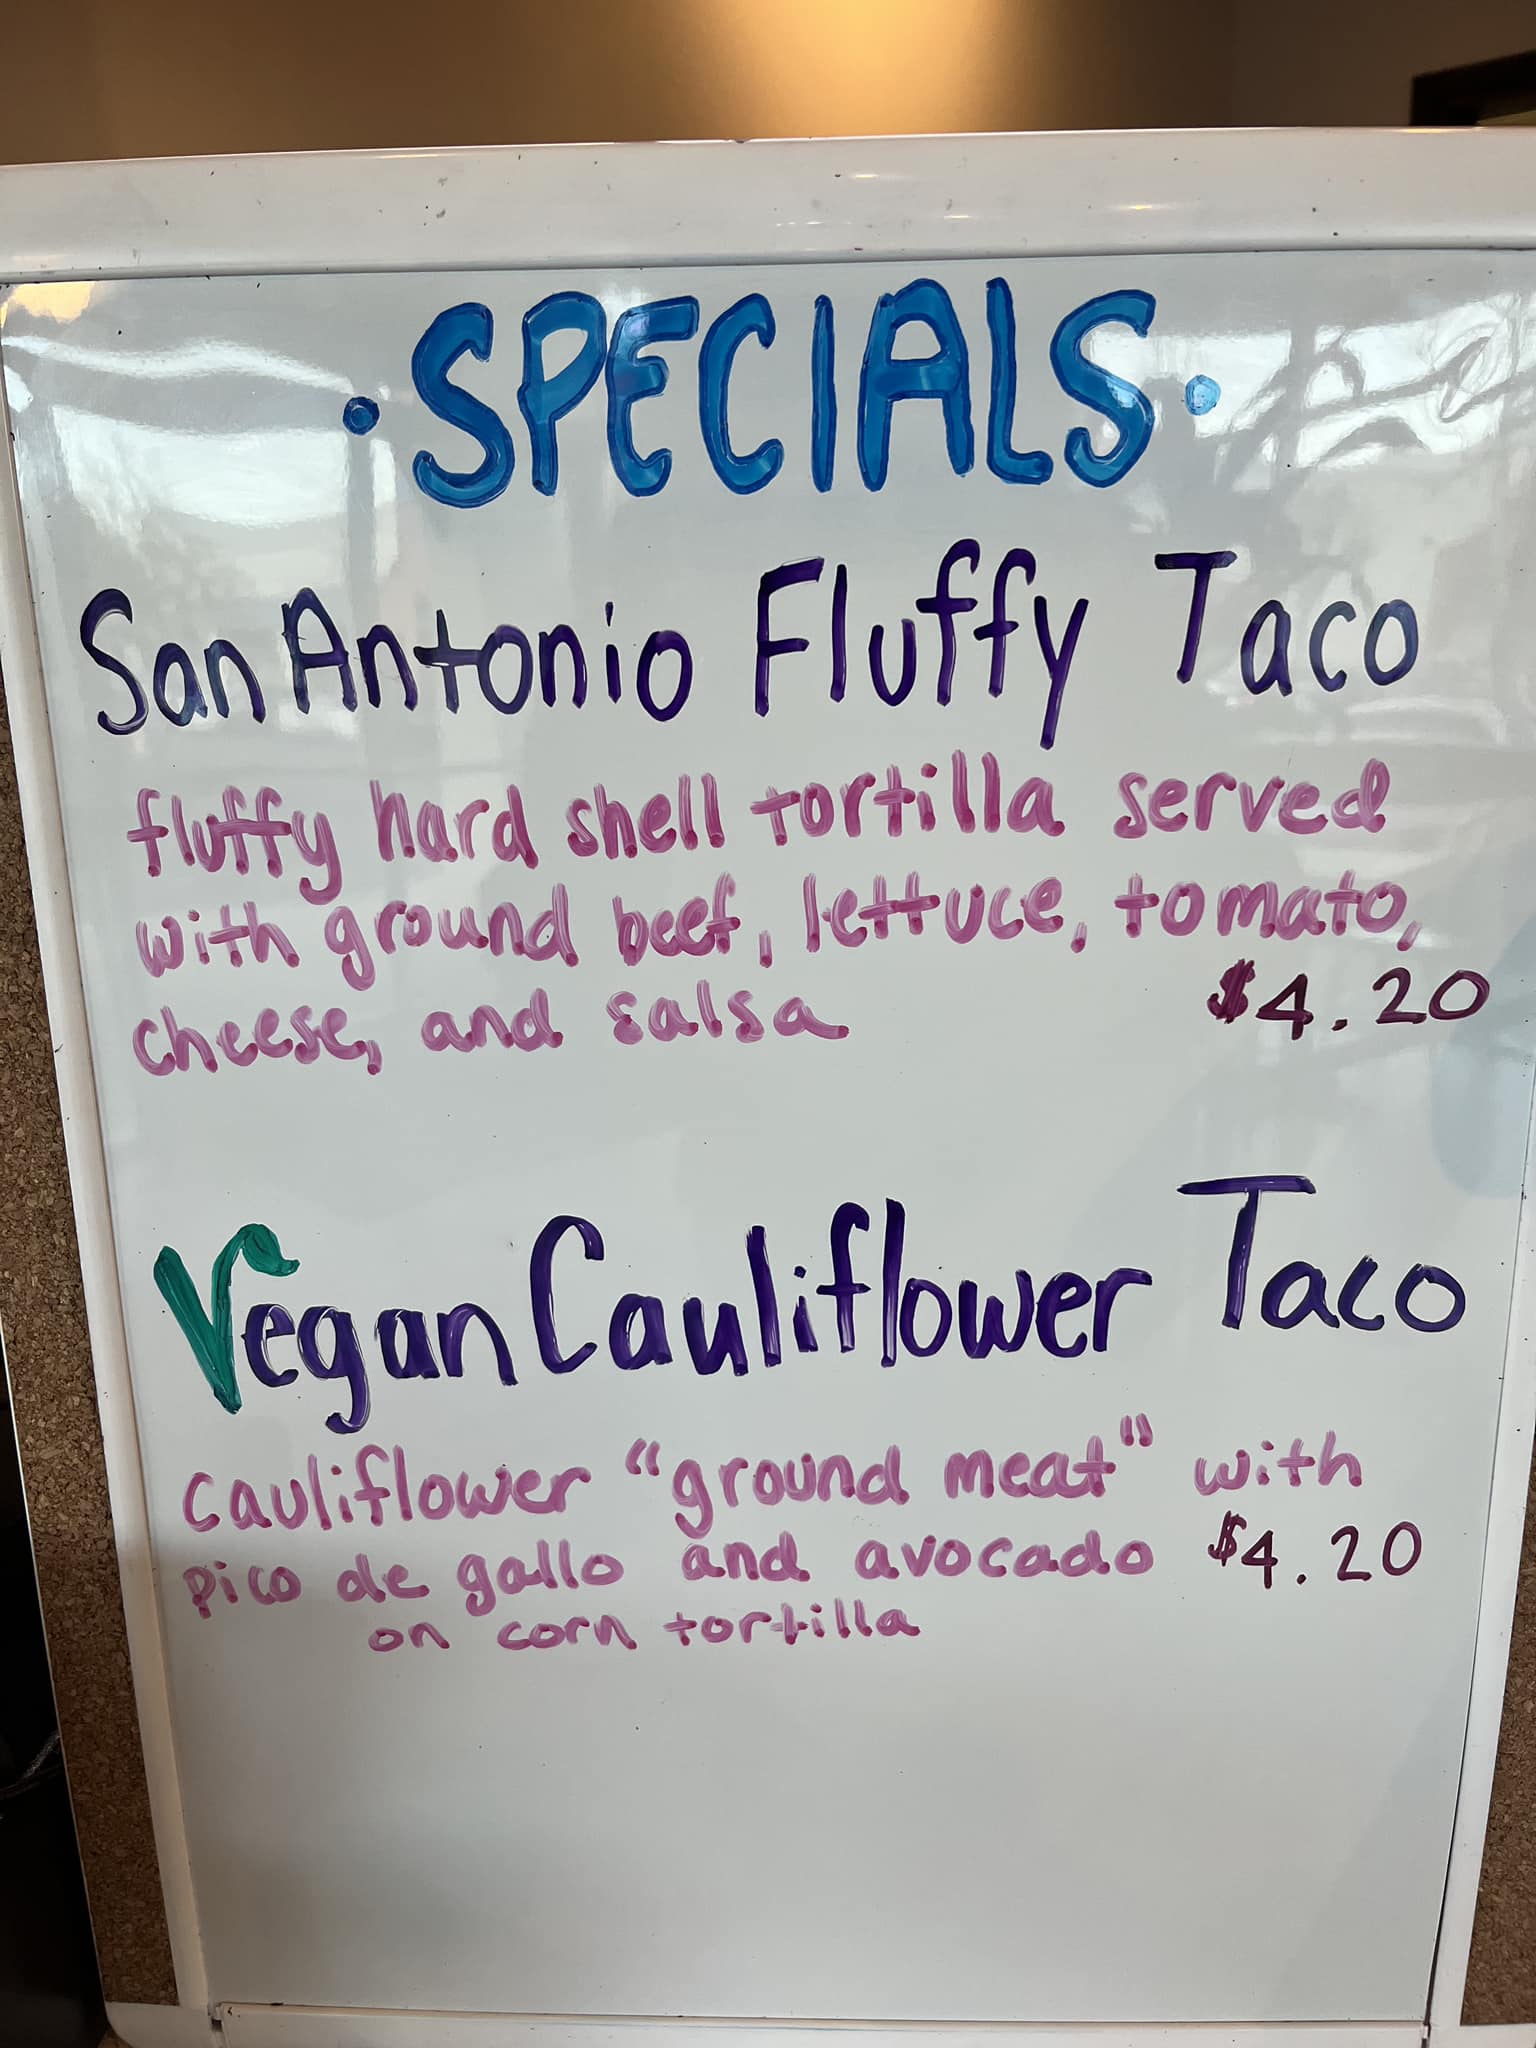 • SPECIALS •
San Antonio Fluffy Taco
fluffy hard shell tortilla served
with ground beef, lettuce, tomato,
cheese, and salsa $4.20
Vegan Cauliflower Taco
cauliflower "ground meat" with
pico de gallo and avocado $4.20
on corn tortilla